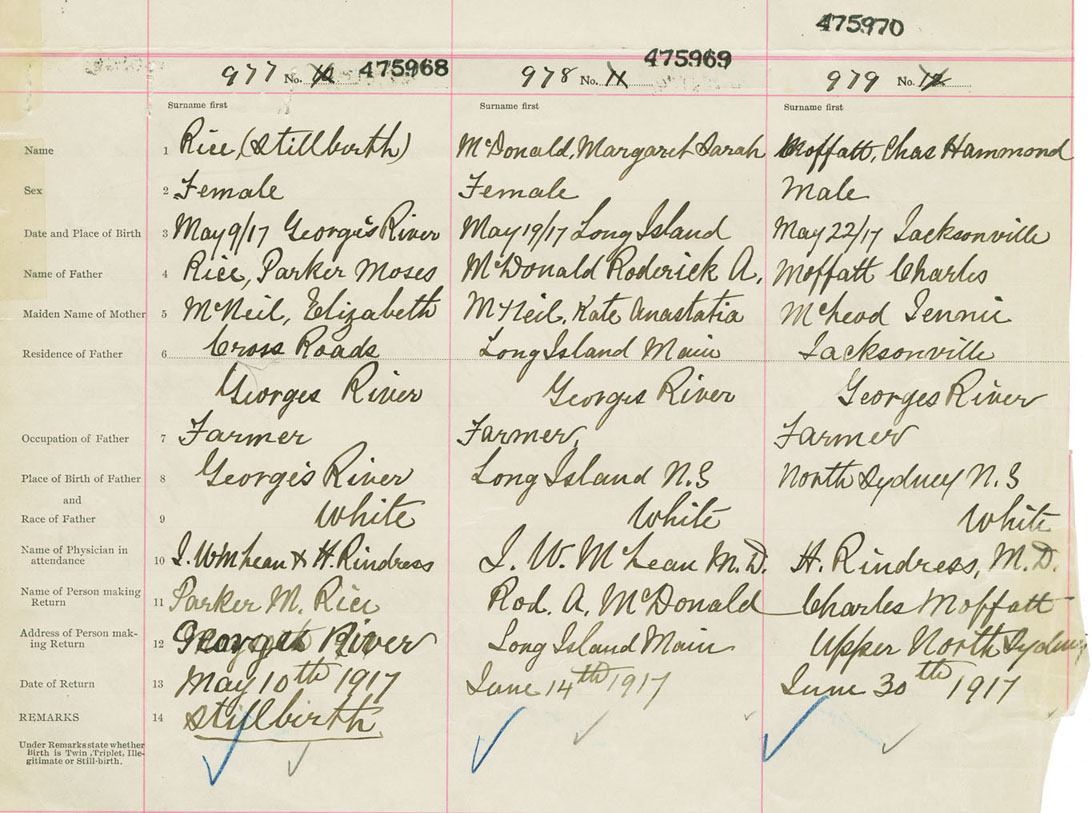 475970
977 No. 10 475968 978 No. 11 475969 979 No. 12
Surname first Surname first Surname first
Name 1 Rice, (Stillbirth) McDonald, Margaret Sarah Moffatt, Chas Hammond
Sex 2 Female Female Male
Date and Place of Birth 3 May 9/17 George's River May 19/17 Long Island May 22/17 Jacksonville
Name of Father 4 Rice, Parker Moses McDonald Roderick A. Moffatt Charles
Maiden Name of Mother 5 McNeil, Elizabeth McNeil, Kate Anastatia McLeod Jennie
Residence of Father 6 Cross Roads Long Island Main Jacksonville
Georges River Georges River Georges River
Occupation of Father 7 Farmer Farmer Farmer
Place of Birth of Father 8 George's River Long Island N.S North Sydney N.S
and
Race of Father 9 White White White
Name of Physician in
attendance 10 J. W McLean & H. Rindress J. W. McLean M.D. H. Rindress, M.D.
Name of Person making
Return 11 Parker M. Rice Rod. A. McDonald Charles Moffatt
Address of Person mak-
ing Return 12 Georges River Long Island Main Upper North Sydney
Date of Return 13 May 10th 1917 June 14th 1917 June 30th 1917
REMARKS 14 Stillbirth
Under Remarks state whether
Birth is Twin, Triplet, Ille-
gitimate or Still-birth.